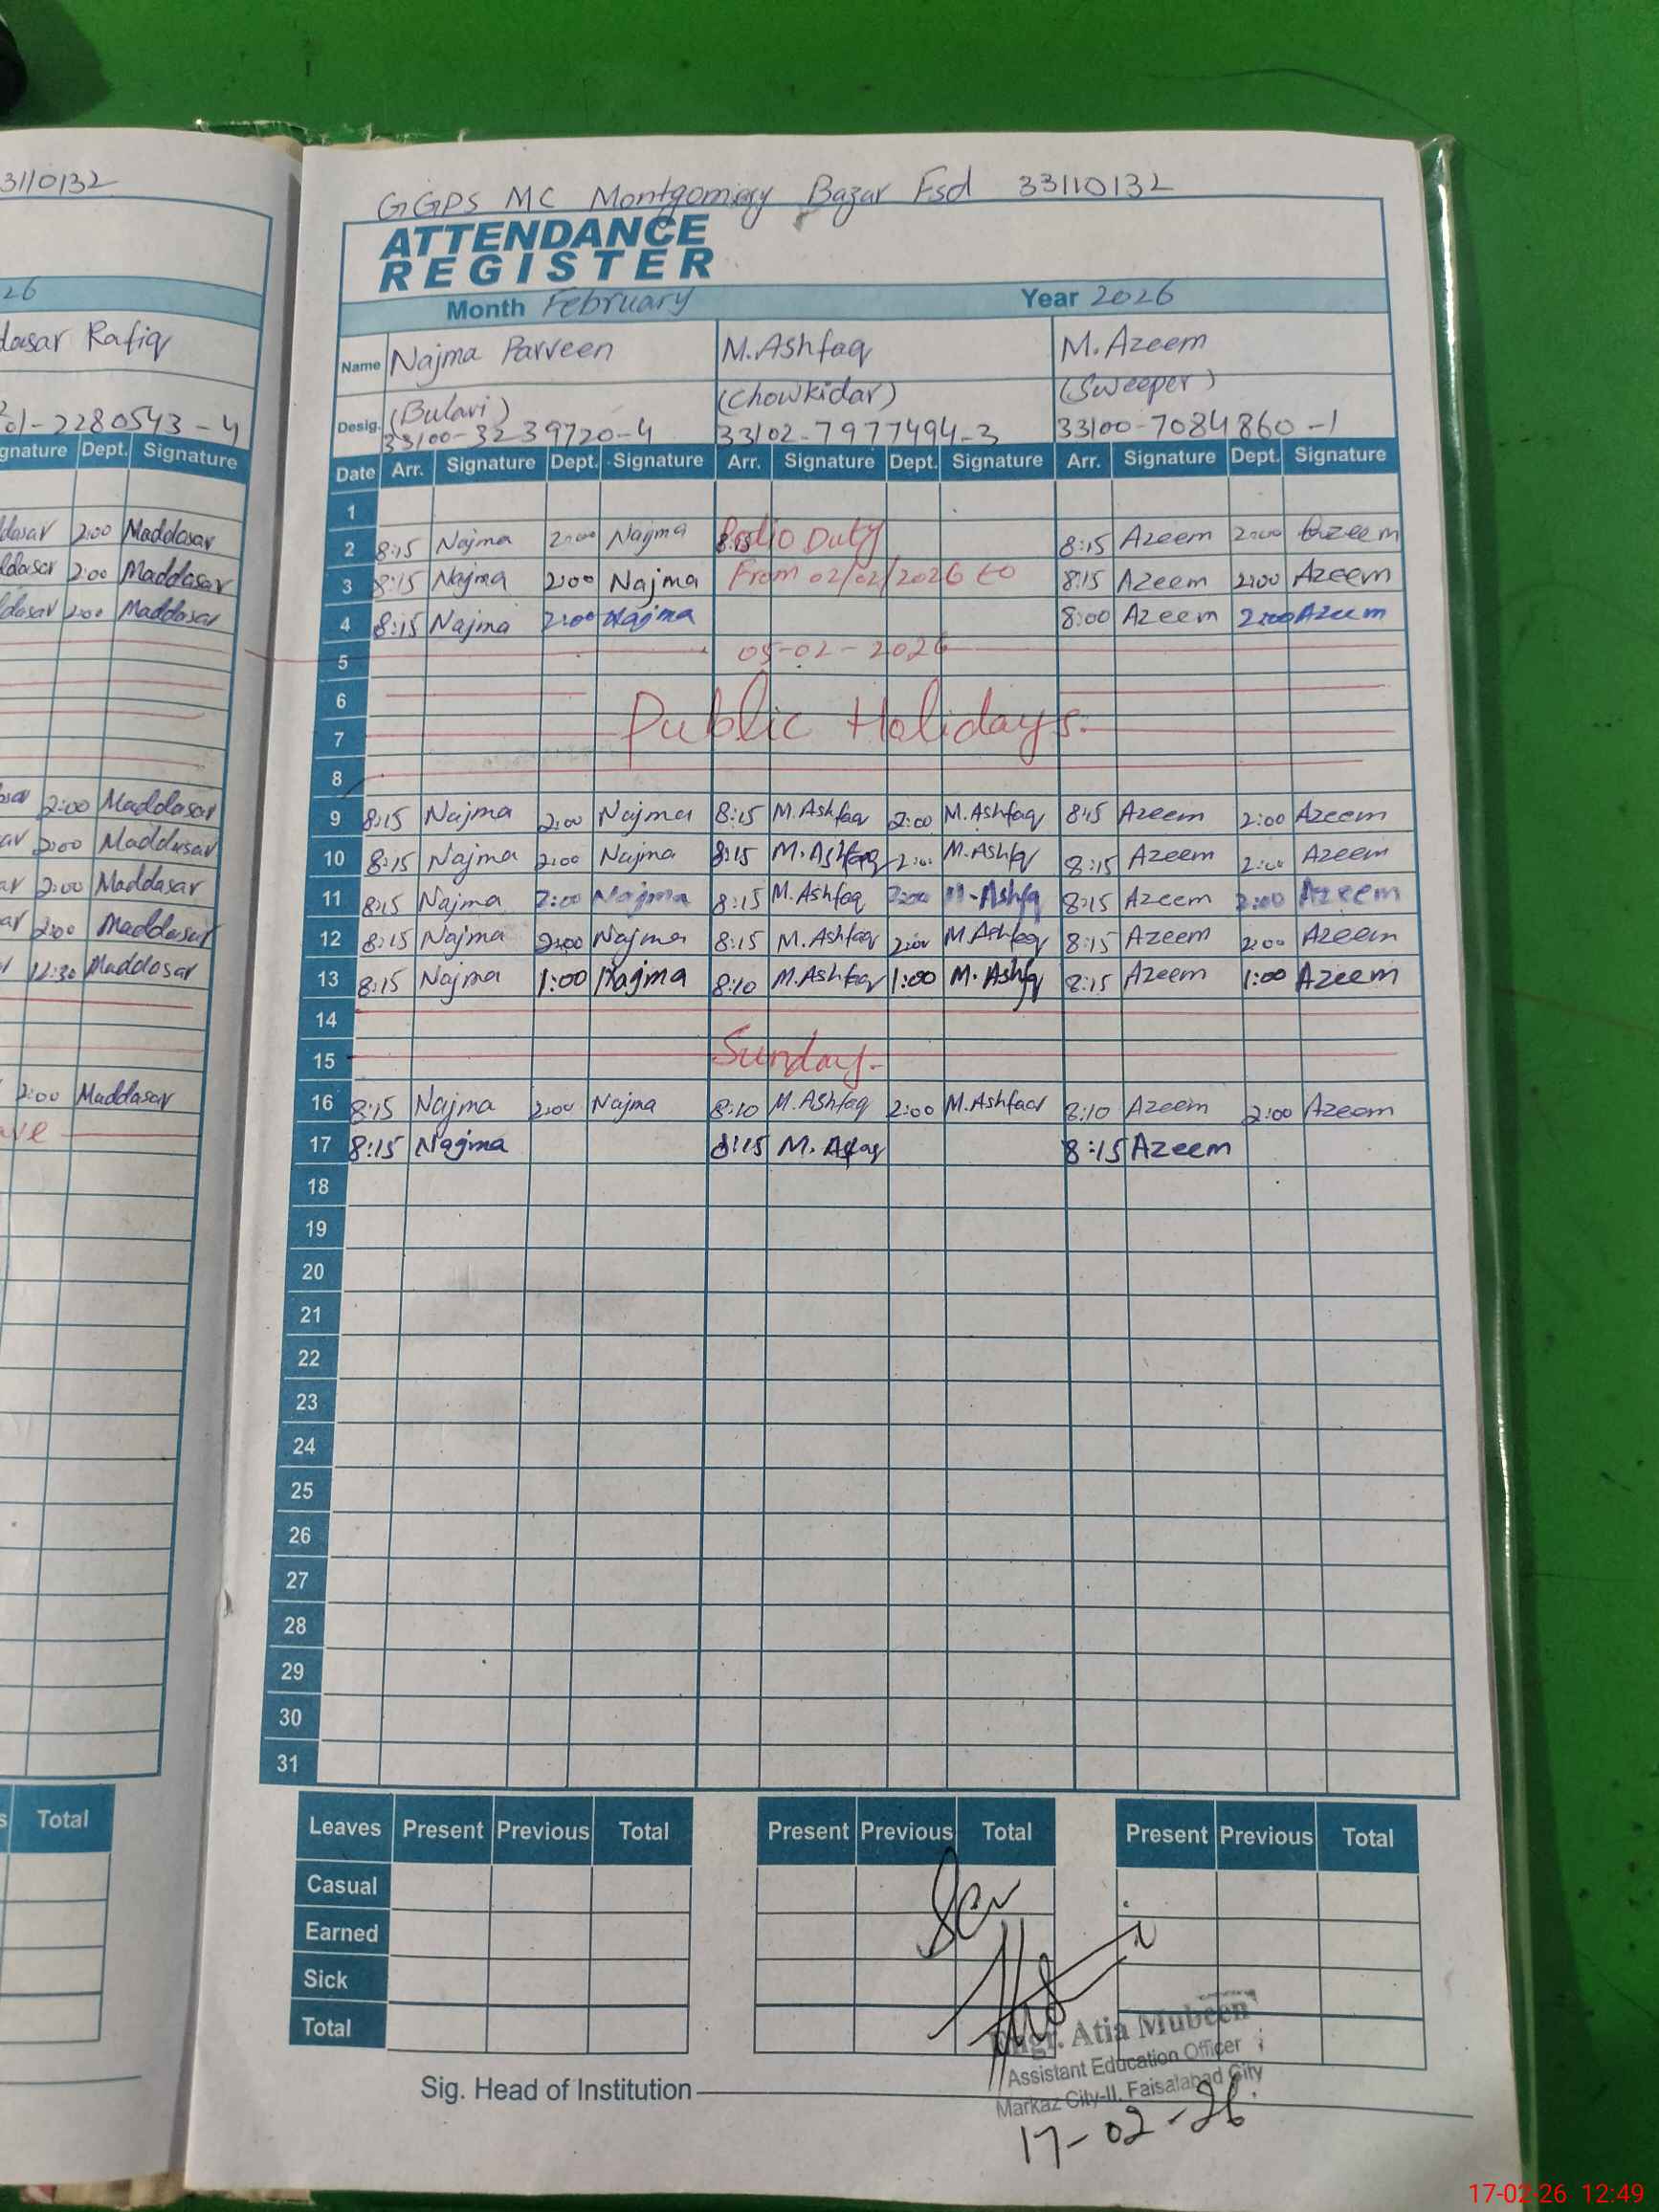 33110132
26
dasar Rafiq
01-2280543-4
gnature Dept. Signature
dasar 2:00 Maddasar
ddasar 2:00 Maddasar
dasar 2:00 Maddasar
2:00 Maddasar
ar 2:00 Maddasar
ar 2:00 Maddasar
ar 2:00 Maddasar
12:30 Maddasar
2:00 Maddasar
ave
s Total
GGPS MC Montgomery Bazar Fsd 33110132
ATTENDANCE
REGISTER
Month February Year 2026
Name Najma Parveen M.Ashfaq M.Azeem
Desig. (Bulavi) (Chowkidar) (Sweeper)
33100-3239720-4 33102-7977494-3 33100-7084860-1
Date Arr. Signature Dept. Signature Arr. Signature Dept. Signature Arr. Signature Dept. Signature
1
2 8:15 Najma 2:00 Najma 8:15 Polio Duty 8:15 Azeem 2:00 Azeem
3 8:15 Najma 2:00 Najma From 02/02/2026 to 8:15 Azeem 2:00 Azeem
4 8:15 Najma 2:00 Najma 8:00 Azeem 2:00 Azeem
5 05-02-2026
6
Public Holidays.
7
8
9 8:15 Najma 2:00 Najma 8:15 M.Ashfaq 2:00 M.Ashfaq 8:15 Azeem 2:00 Azeem
10 8:15 Najma 2:00 Najma 8:15 M.Ashfaq 2:00 M.Ashfq 8:15 Azeem 2:00 Azeem
11 8:15 Najma 2:00 Najma 8:15 M.Ashfaq 2:00 M-Ashfq 8:15 Azeem 2:00 Azeem
12 8:15 Najma 2:00 Najma 8:15 M.Ashfaq 2:00 M.Ashfaq 8:15 Azeem 2:00 Azeem
13 8:15 Najma 1:00 Najma 8:10 M.Ashfaq 1:00 M.Ashfq 8:15 Azeem 1:00 Azeem
14
15 Sunday.
16 8:15 Najma 2:00 Najma 8:10 M.Ashfaq 2:00 M.Ashfaq 8:10 Azeem 2:00 Azeem
17 8:15 Najma 8:15 M. 8:15 Azeem
18
19
20
21
22
23
24
25
26
27
28
29
30
31
Leaves Present Previous Total Present Previous Total Present Previous Total
Casual
Earned
Sick
Total
Engr. Atia Mubeen
Assistant Education Officer
Markaz City-II, Faisalabad City
Sig. Head of Institution
17-02-26
17-02-26 12:49